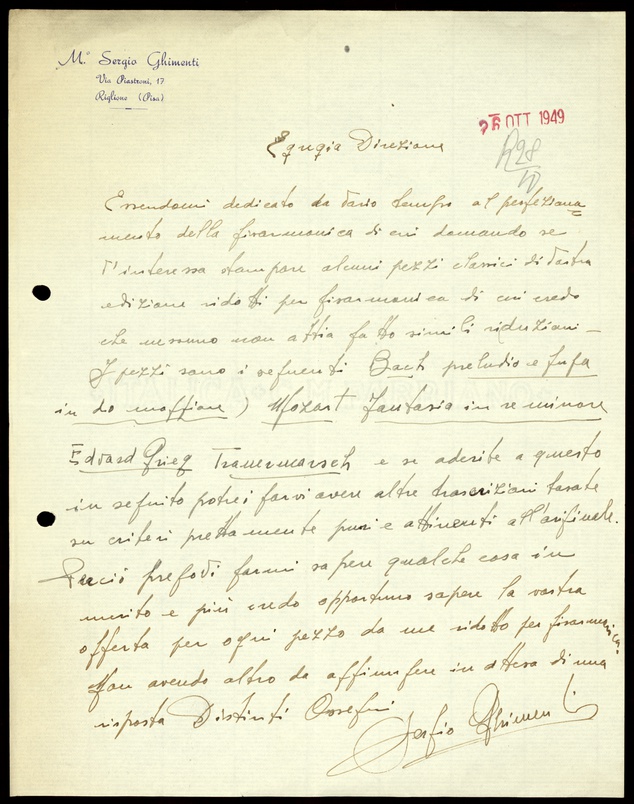 M.° Sergio Ghimenti
Via Piastroni, 17
Riglione (Pisa)
26 OTT 1949
R 28
10
Egregia Direzione
Essendomi dedicato da vario tempo al perfeziona=
mento della fisarmonica di cui domando se
v'interessa stampare alcuni pezzi classici di vostra
edizione ridotti per fisarmonica di cui credo
che nessuno non abbia fatto simili riduzioni –
I pezzi sono i seguenti Bach preludio e fuga
in do maggiore) Mozart Fantasia in re minore
Edvard Grieg Trauermarsch e se aderite a questo
in seguito potrei farvi avere altre trascrizioni basate
su criteri prettamente puri e attinenti all'originale.
Perciò pregovi farmi sapere qualche cosa in
merito e più credo opportuno sapere la vostra
offerta per ogni pezzo da me ridotto per fisarmonica.
Non avendo altro da aggiungere in attesa di una
risposta Distinti Ossequi
Sergio Ghimenti